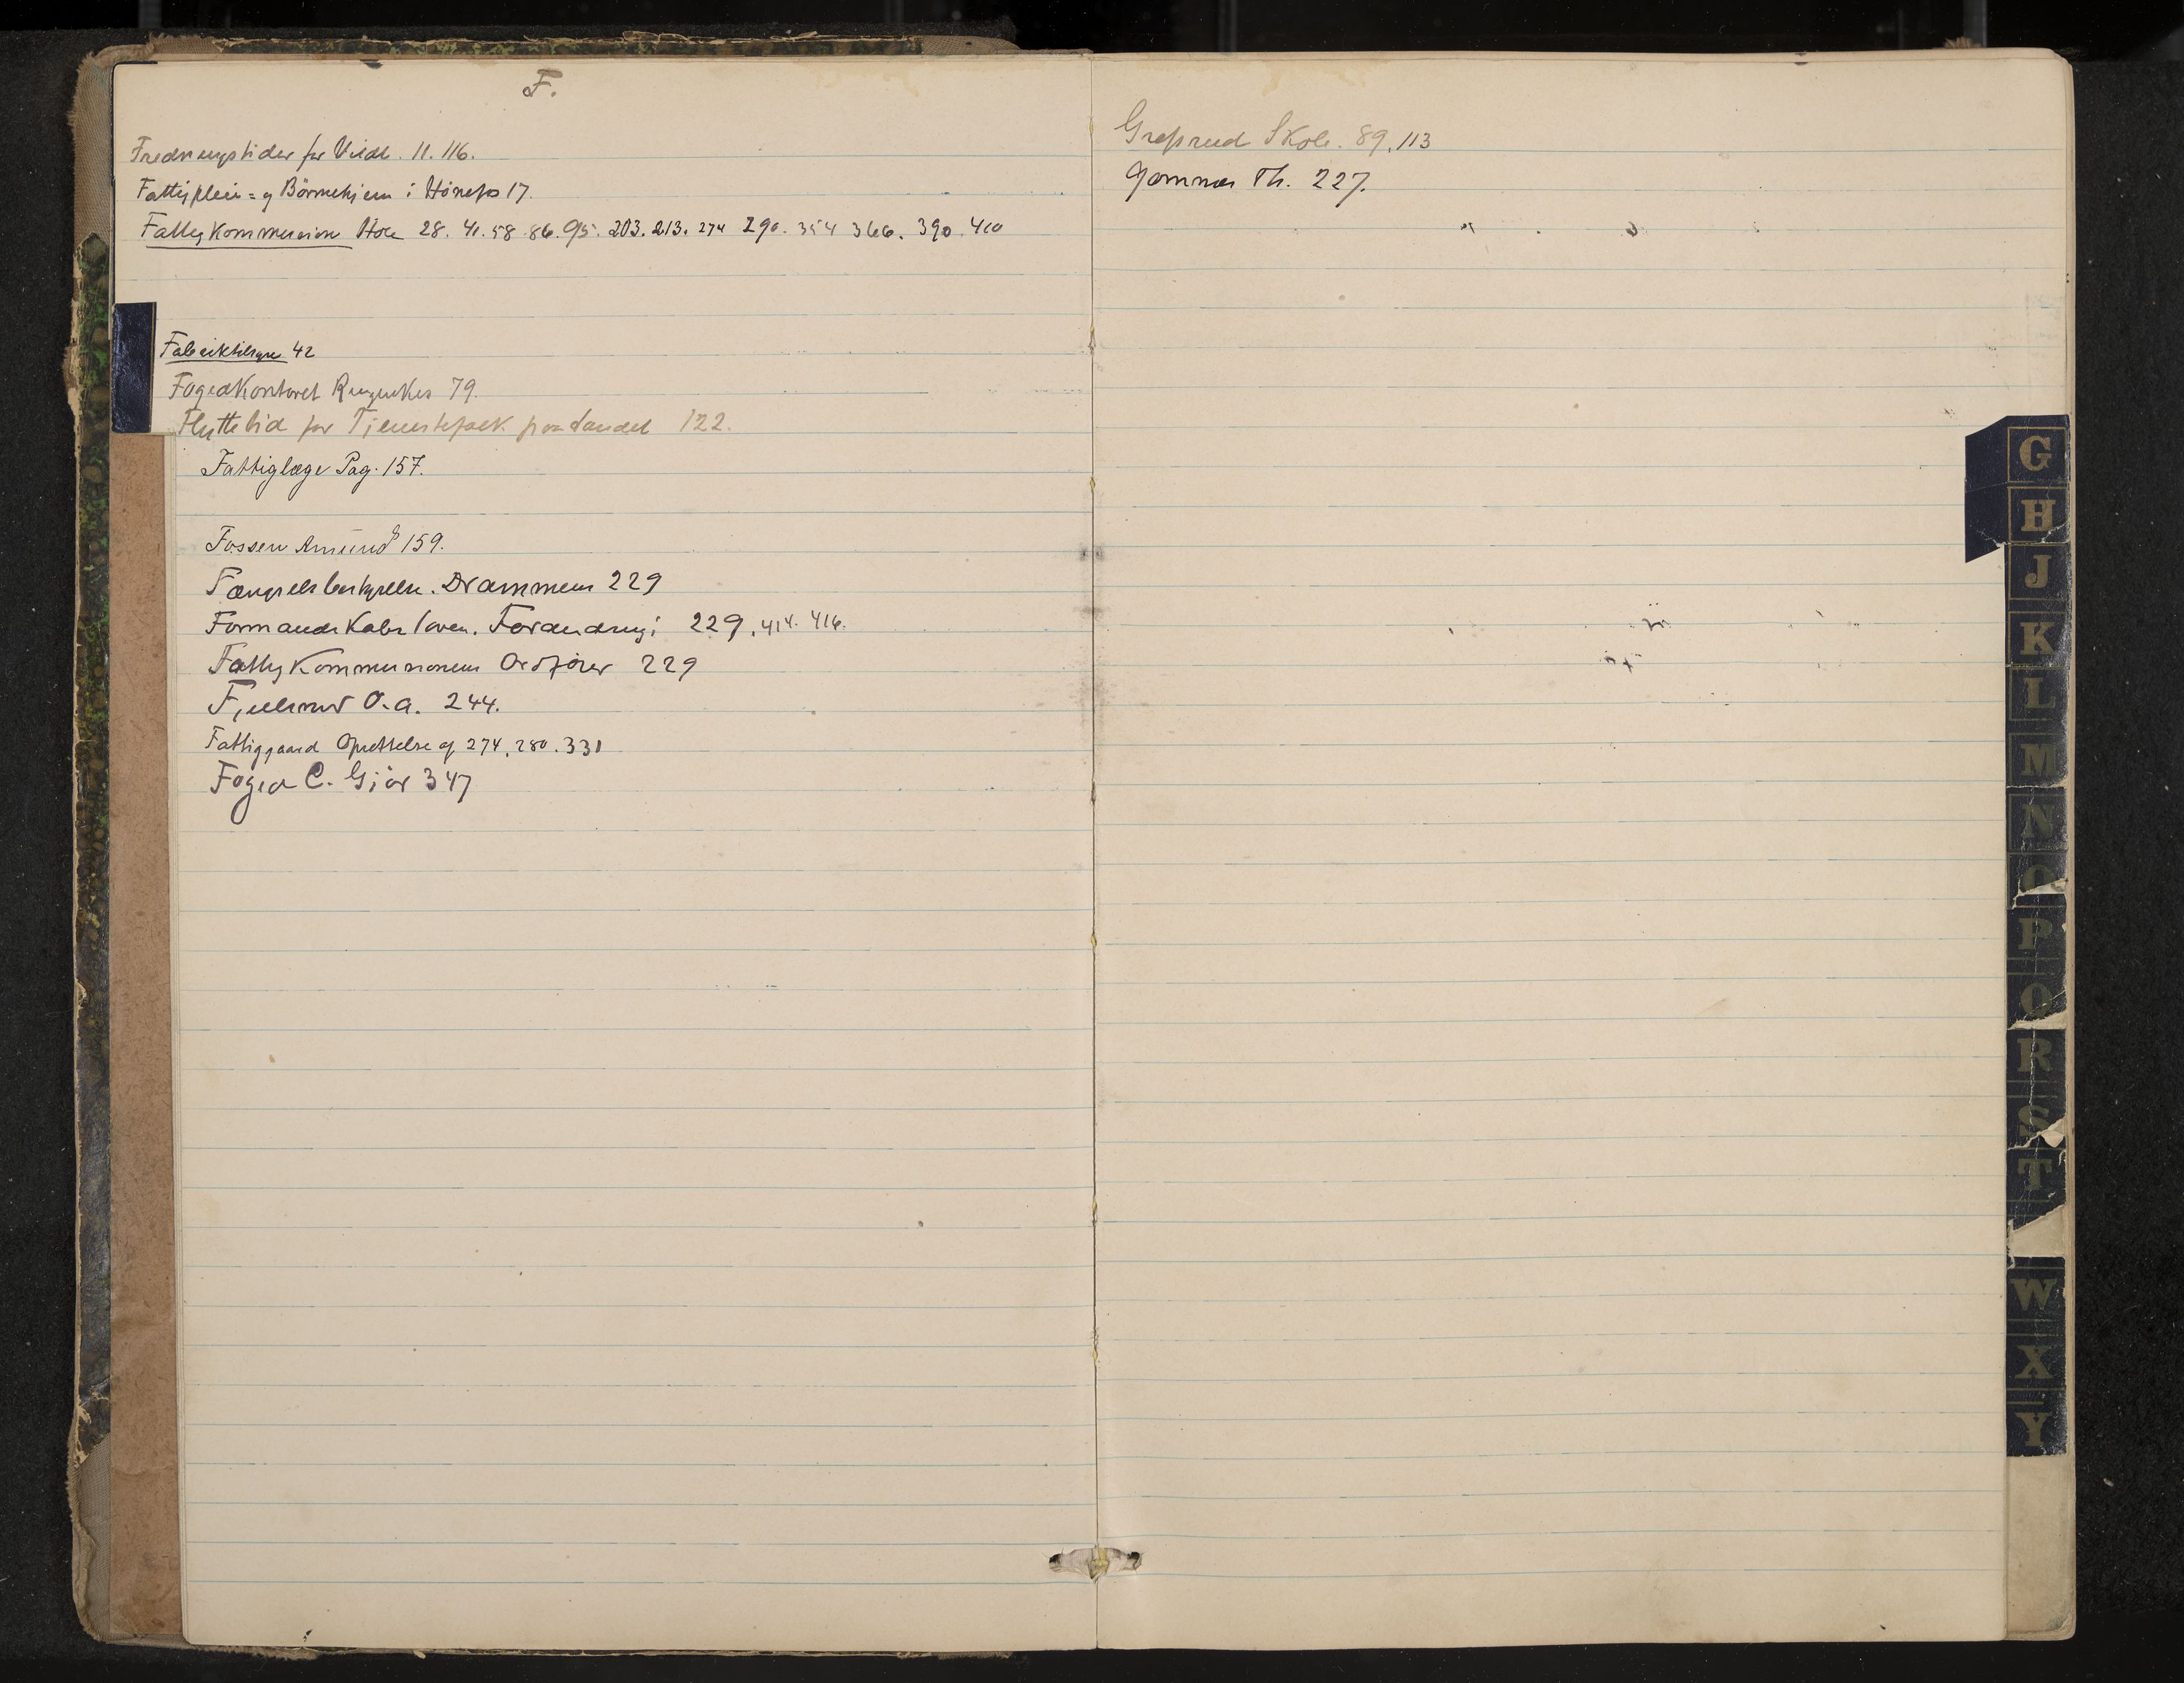 F.
Fredningstider for Vildt. 11. 116.
Fattigpleie= og Börnehjem i Hönefos 17.
Fattigkommission Hole 28. 41. 58. 86. 95. 203. 213. 274 290. 354 366. 390. 410
Fabriktilsyn 42
Fogedkontoret Ringerikes 79.
Flyttetid for Tjenestefolk paa Landet 122.
Fattiglæge Pag. 157.
Fossen Amund 159.
Fængselsbestyrelse. Drammens 229
Formandskabsloven. Forandring i 229, 414. 416.
Fattigkommissionens Ordförer 229
O. A. 244.
Fattiggaard Oprettelse af 274, 280. 331
Foged C. Gjör 347
Gresrud Skole. 89, 113
Gomnæs Th. 227.
G
H
J
K
L
M
N
O
P
Q
R
S
T
W
X
Y